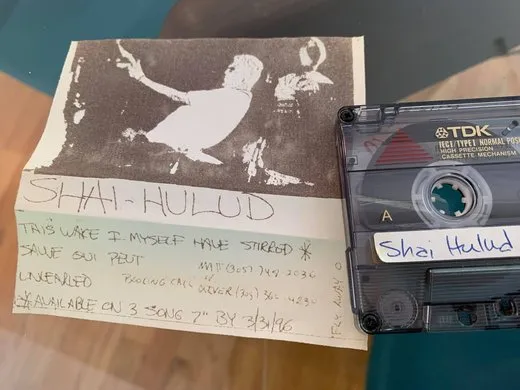 SHAI-HULUD
THIS WAKE I MYSELF HAVE STIRRED *
SAUVE QUI PEUT
UNLEARNED
BOOKING CALL
MATT (305) 748-2036
OR OLIVER (305) 360-4830
*AVAILABLE ON 3 SONG 7" BY 3/31/96
TDK
IECI/TYPE I NORMAL POSI
HIGH PRECISION
CASSETTE MECHANISM
A
Shai Hulud